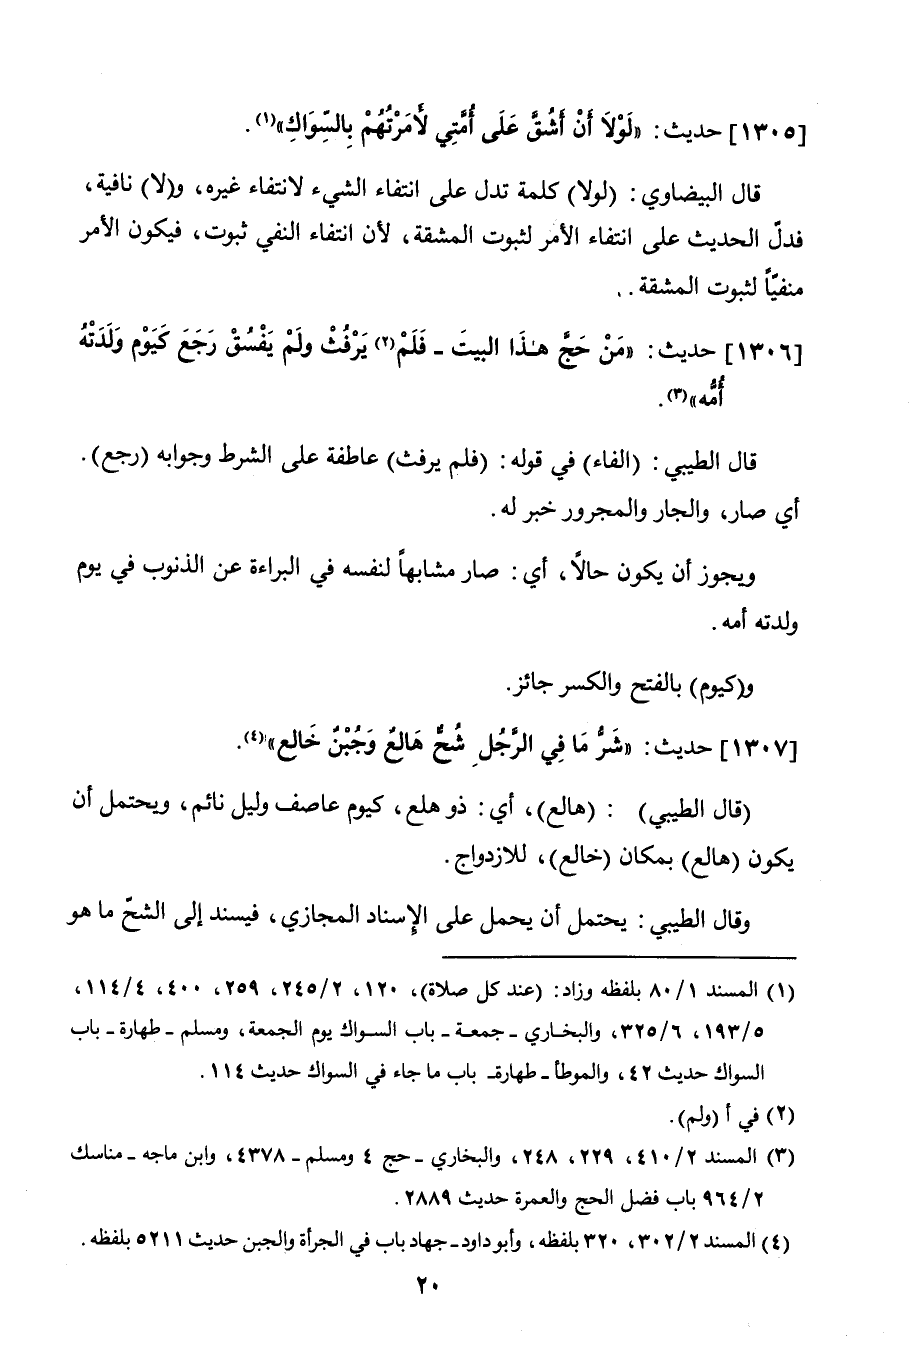 [١٣٠٥] حديث: «لَوْلاَ أَنْ أَشُقَّ عَلَى أُمَّتِي لأَمَرْتُهُمْ بِالسِّوَاكِ»(١).
قال البيضاوي: (لولا) كلمة تدل على انتفاء الشيء لانتفاء غيره، و(لا) نافية،
فدلّ الحديث على انتفاء الأمر لثبوت المشقة، لأن انتفاء النفي ثبوت، فيكون الأمر
منفيّاً لثبوت المشقة.
[١٣٠٦] حديث: «مَنْ حَجَّ هـٰذَا البيتَ ـ فَلَمْ(٢) يَرْفُثْ ولَمْ يَفْسُقْ رَجَعَ كَيَوْم وَلَدَتْهُ
أُمُّه»(٣).
قال الطيبي: (الفاء) في قوله: (فلم يرفث) عاطفة على الشرط وجوابه (رجع).
أي صار، والجار والمجرور خبر له.
ويجوز أن يكون حالاً، أي: صار مشابهاً لنفسه في البراءة عن الذنوب في يوم
ولدته أمه.
و(كيوم) بالفتح والكسر جائز.
[١٣٠٧] حديث: «شَرُّ مَا فِي الرَّجُلِ شُحٌّ هَالعٌ وَجُبْنٌ خَالع»(٤).
(قال الطيبي) : (هالع)، أي: ذو هلع، كيوم عاصف وليل نائم، ويحتمل أن
يكون (هالع) بمكان (خالع)، للازدواج.
وقال الطيبي: يحتمل أن يحمل على الإسناد المجازي، فيسند إلى الشحّ ما هو
(١) المسند ٨٠/١ بلفظه وزاد: (عند كل صلاة)، ١٢٠، ٢٤٥/٢، ٢٥٩، ٤٠٠، ١١٤/٤،
١٩٣/٥، ٣٢٥/٦، والبخاري ـ جمعة ـ باب السواك يوم الجمعة، ومسلم ـ طهارة ـ باب
السواك حديث ٤٢، والموطأ ـ طهارة ـ باب ما جاء في السواك حديث ١١٤.
(٢) في أ (ولم).
(٣) المسند ٤١٠/٢، ٢٢٩، ٢٤٨، والبخاري ـ حج ٤ ومسلم ـ ٤٣٧٨، وابن ماجه ـ مناسك
٩٦٤/٢ باب فضل الحج والعمرة حديث ٢٨٨٩.
(٤) المسند ٣٠٢/٢، ٣٢٠ بلفظه، وأبو داود ـ جهاد باب في الجرأة والجبن حديث ٥٢١١ بلفظه.
٢٠